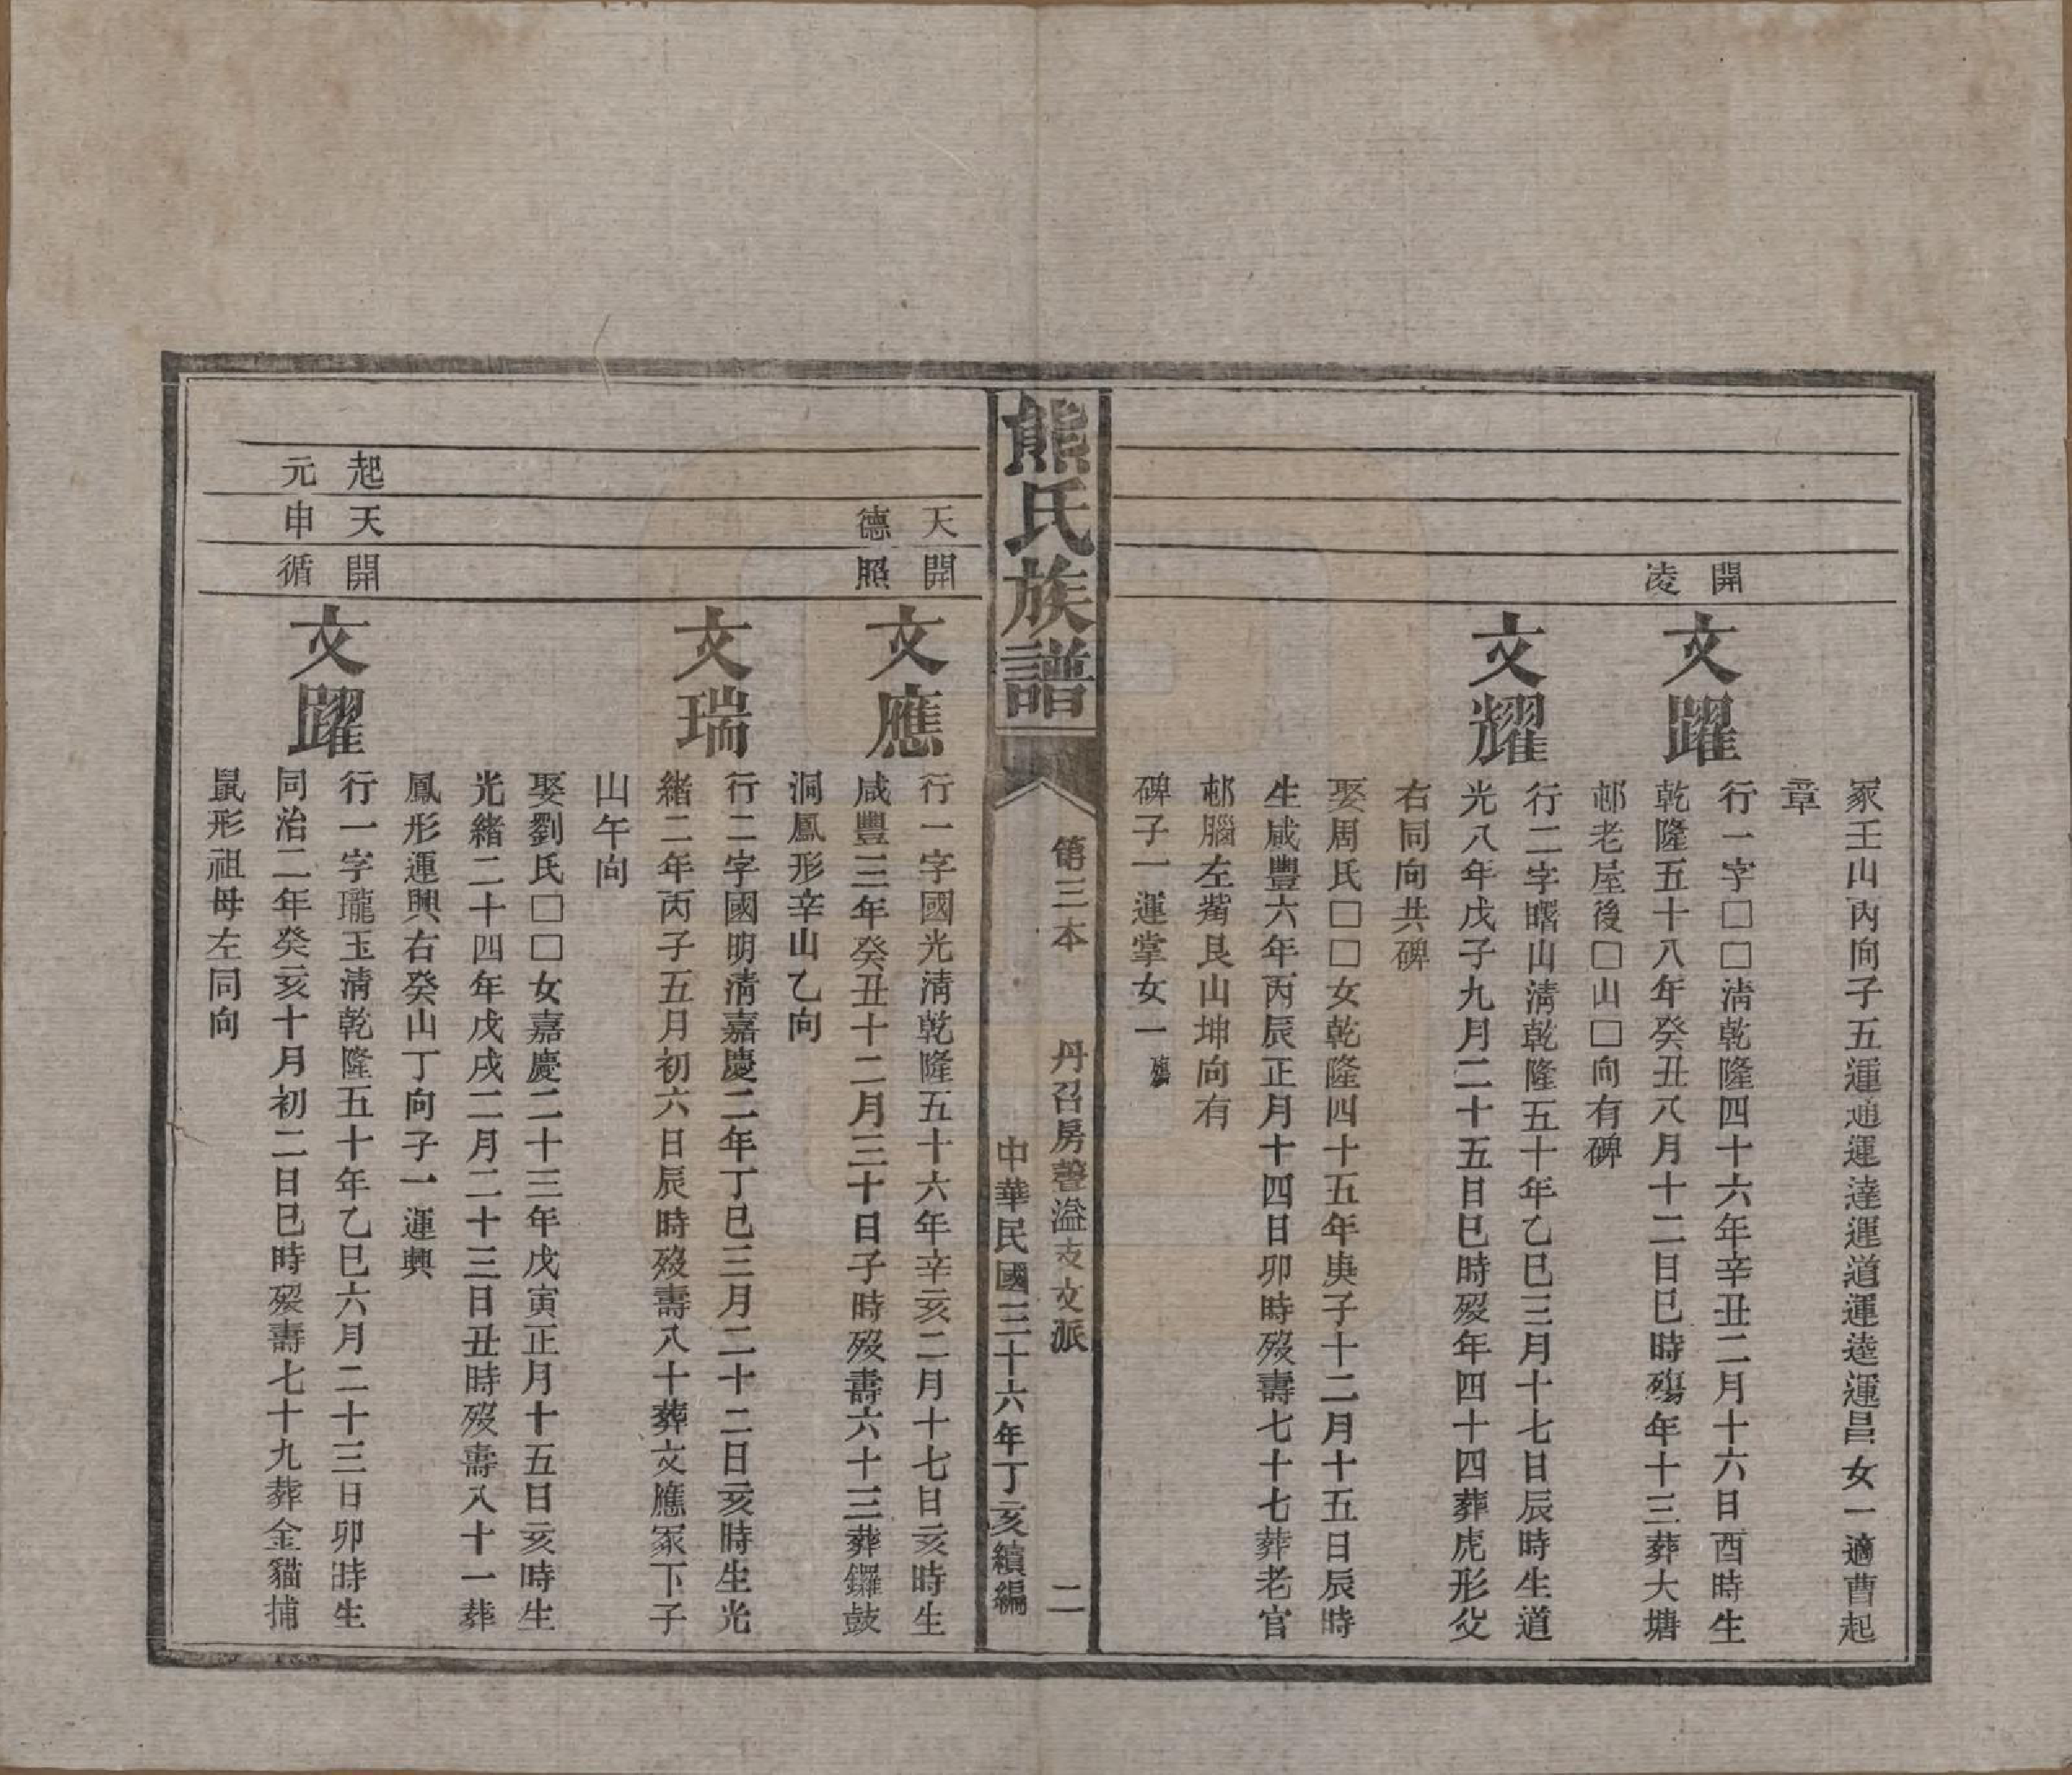 冢王山內向子五運通運達運道運逵運昌女一適曹起
章
開
凌
文躍
行一字□□清乾隆四十六年辛丑二月十六日酉時生
乾隆五十八年癸丑八月十二日巳時殤年十三葬大塘
邨老屋後□山□向有碑
文耀
行二字曙山清乾隆五十年乙巳三月十七日辰時生道
光八年戊子九月二十五日巳時歿年四十四葬虎形父
右同向共碑
娶周氏□□女乾隆四十五年庚子十二月十五日辰時
生咸豐六年丙辰正月十四日卯時歿壽七十七葬老官
邨腦左嘴艮山坤向有
碑子一運掌女一殤
熊氏族譜
第三本
丹召房馨溢支文派
二
中華民國三十六年丁亥續編
天開
德照
文應
行一字國光清乾隆五十六年辛亥二月十七日亥時生
咸豐三年癸丑十二月三十日子時歿壽六十三葬鑼鼓
洞鳳形辛山乙向
文瑞
行二字國明清嘉慶二年丁巳三月二十二日亥時生光
緒二年丙子五月初六日辰時歿壽八十葬文應冢下子
山午向
娶劉氏□□女嘉慶二十三年戊寅正月十五日亥時生
光緒二十四年戊戌二月二十三日丑時歿壽八十一葬
鳳形運興右癸山丁向子一運興
起天開
元申循
文躍
行一字瓏玉清乾隆五十年乙巳六月二十三日卯時生
同治二年癸亥十月初二日巳時歿壽七十九葬金貓捕
鼠形祖母左同向